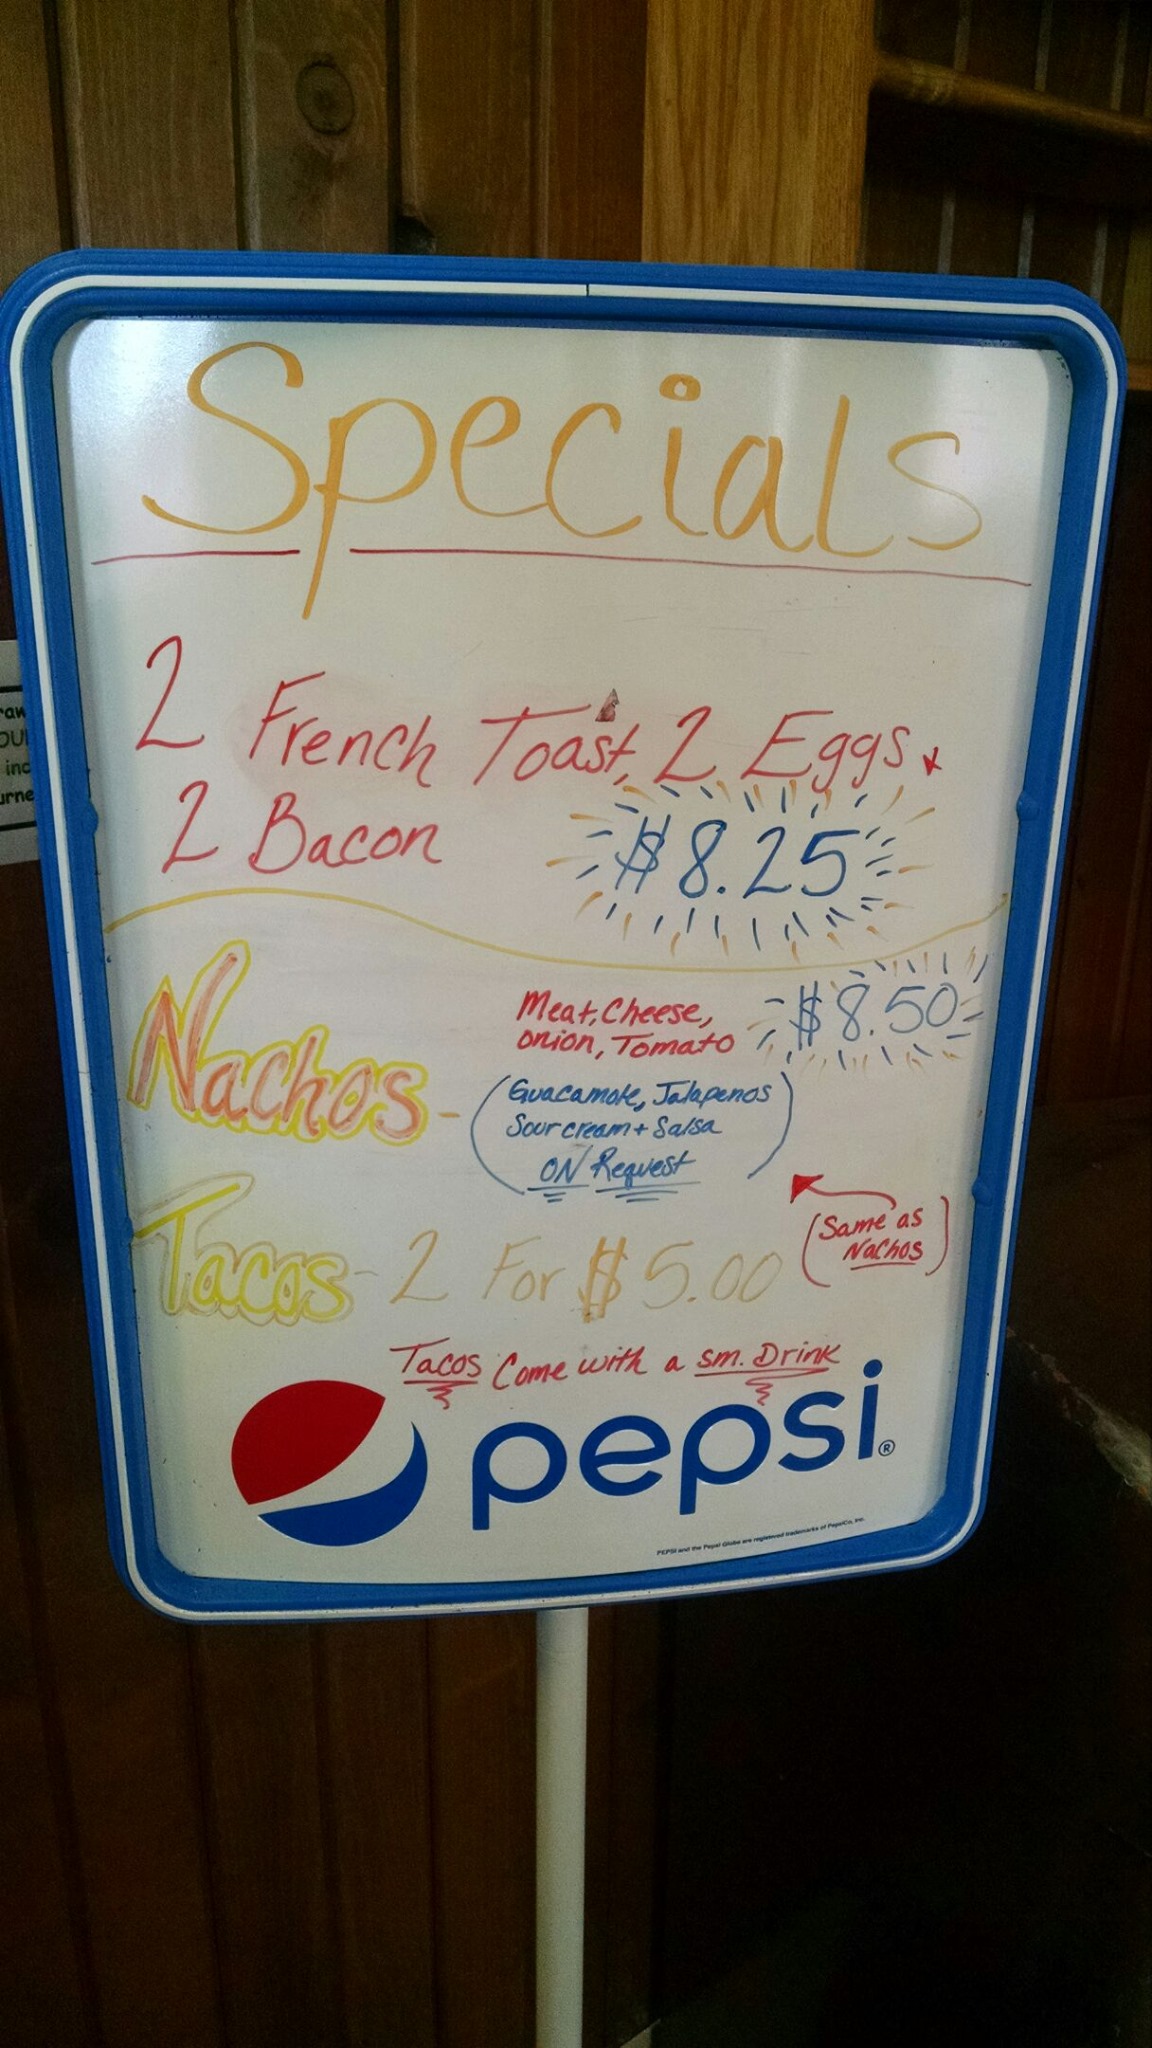 Specials
2 French Toast, 2 Eggs
2 Bacon
$8.25
Nachos-
Meat, Cheese,
onion, Tomato
$8.50
(Guacamole, Jalapenos
Sour cream + Salsa
ON Request)
Tacos - 2 For $5.00
(Same as
Nachos)
Tacos Come with a sm. Drink
pepsi®
PEPSI and the Pepsi Globe are registered trademarks of PepsiCo, Inc.
raw
OU
inc
urne